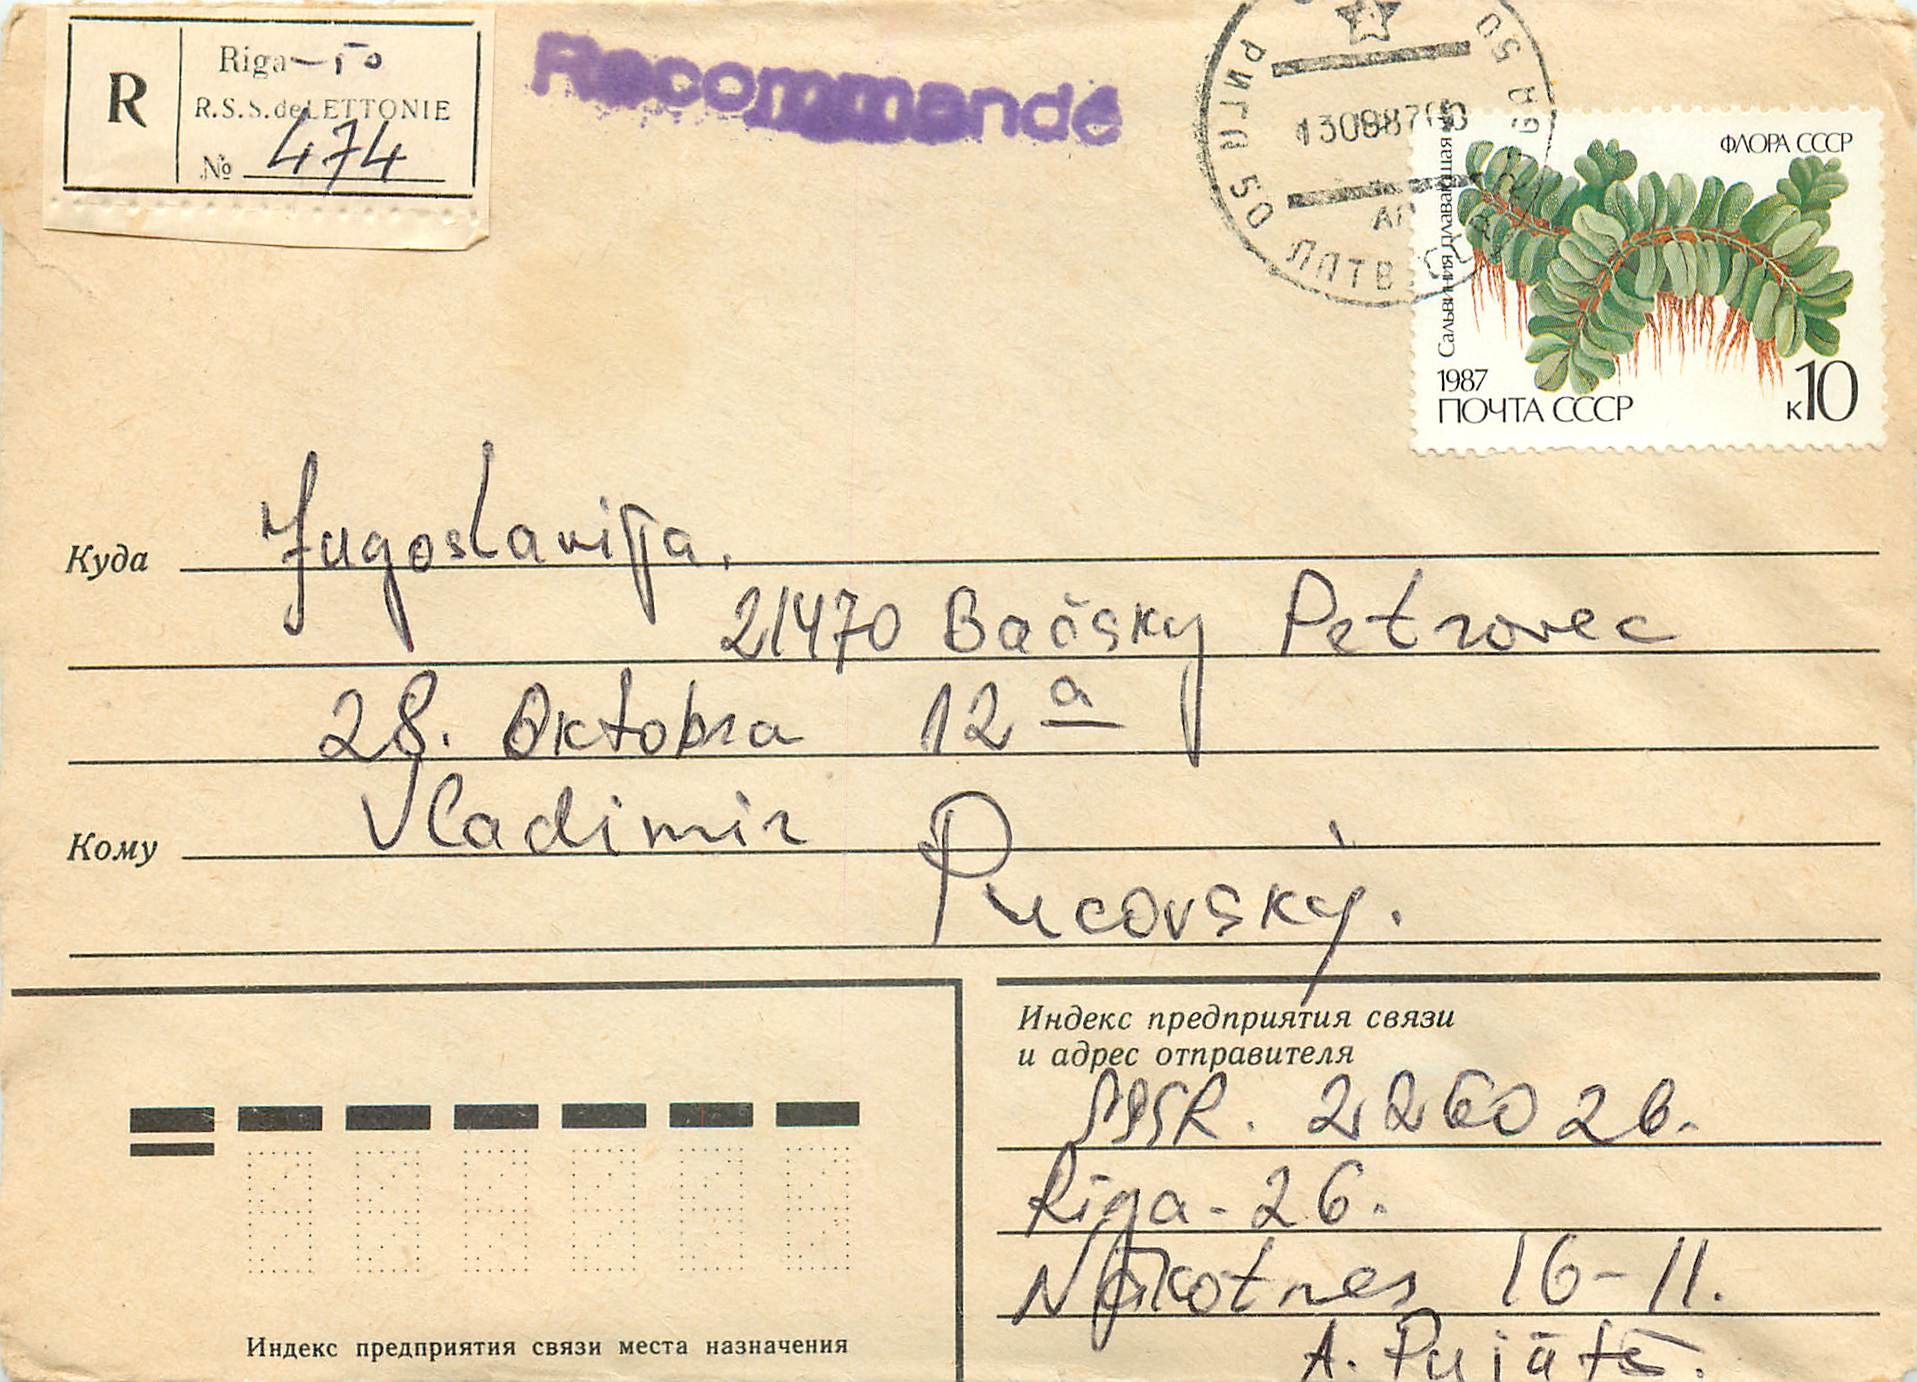 R
Riga-50
R.S.S. de LETTONIE
№ 474
Recommandé
РИГА 50
130887
ФЛОРА СССР
Сальвиния плавающая
1987
ПОЧТА СССР
к10
Куда Jugoslavija,
21470 Bačsky Petrovec
28. Oktobra 12 a
Кому Vladimir
Pucovský.
Индекс предприятия связи
и адрес отправителя
226026.
Riga-26.
Nākotnes 16-11.
A.
Индекс предприятия связи места назначения